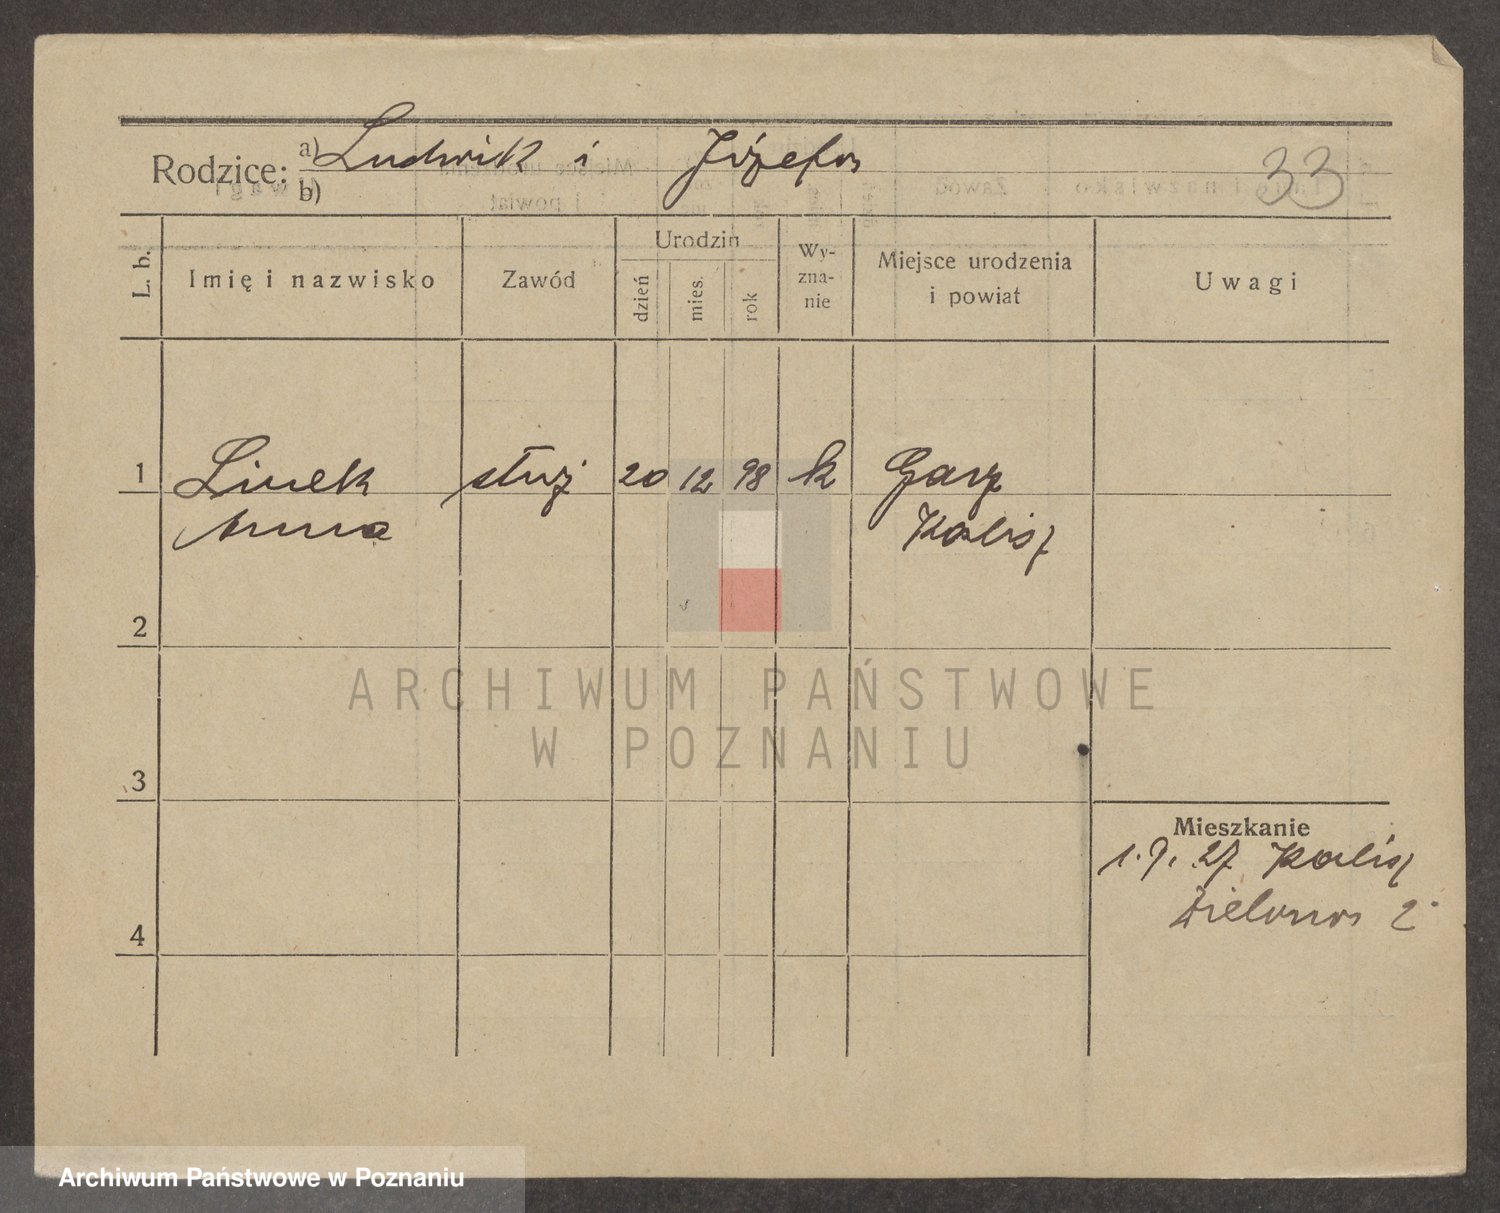 Rodzice: a) Ludwik i Józefa
b)
33
L. b.
Imię i nazwisko
Zawód
Urodzin
dzień
mies.
rok
Wy-
zna-
nie
Miejsce urodzenia
i powiat
Uwagi
1 Linek służ 20 12 98 k
Anna Kalisz
2
3
4
Mieszkanie
1.9.27 Kalisz
Zielona 2
ARCHIWUM PAŃSTWOWE
W POZNANIU
Archiwum Państwowe w Poznaniu